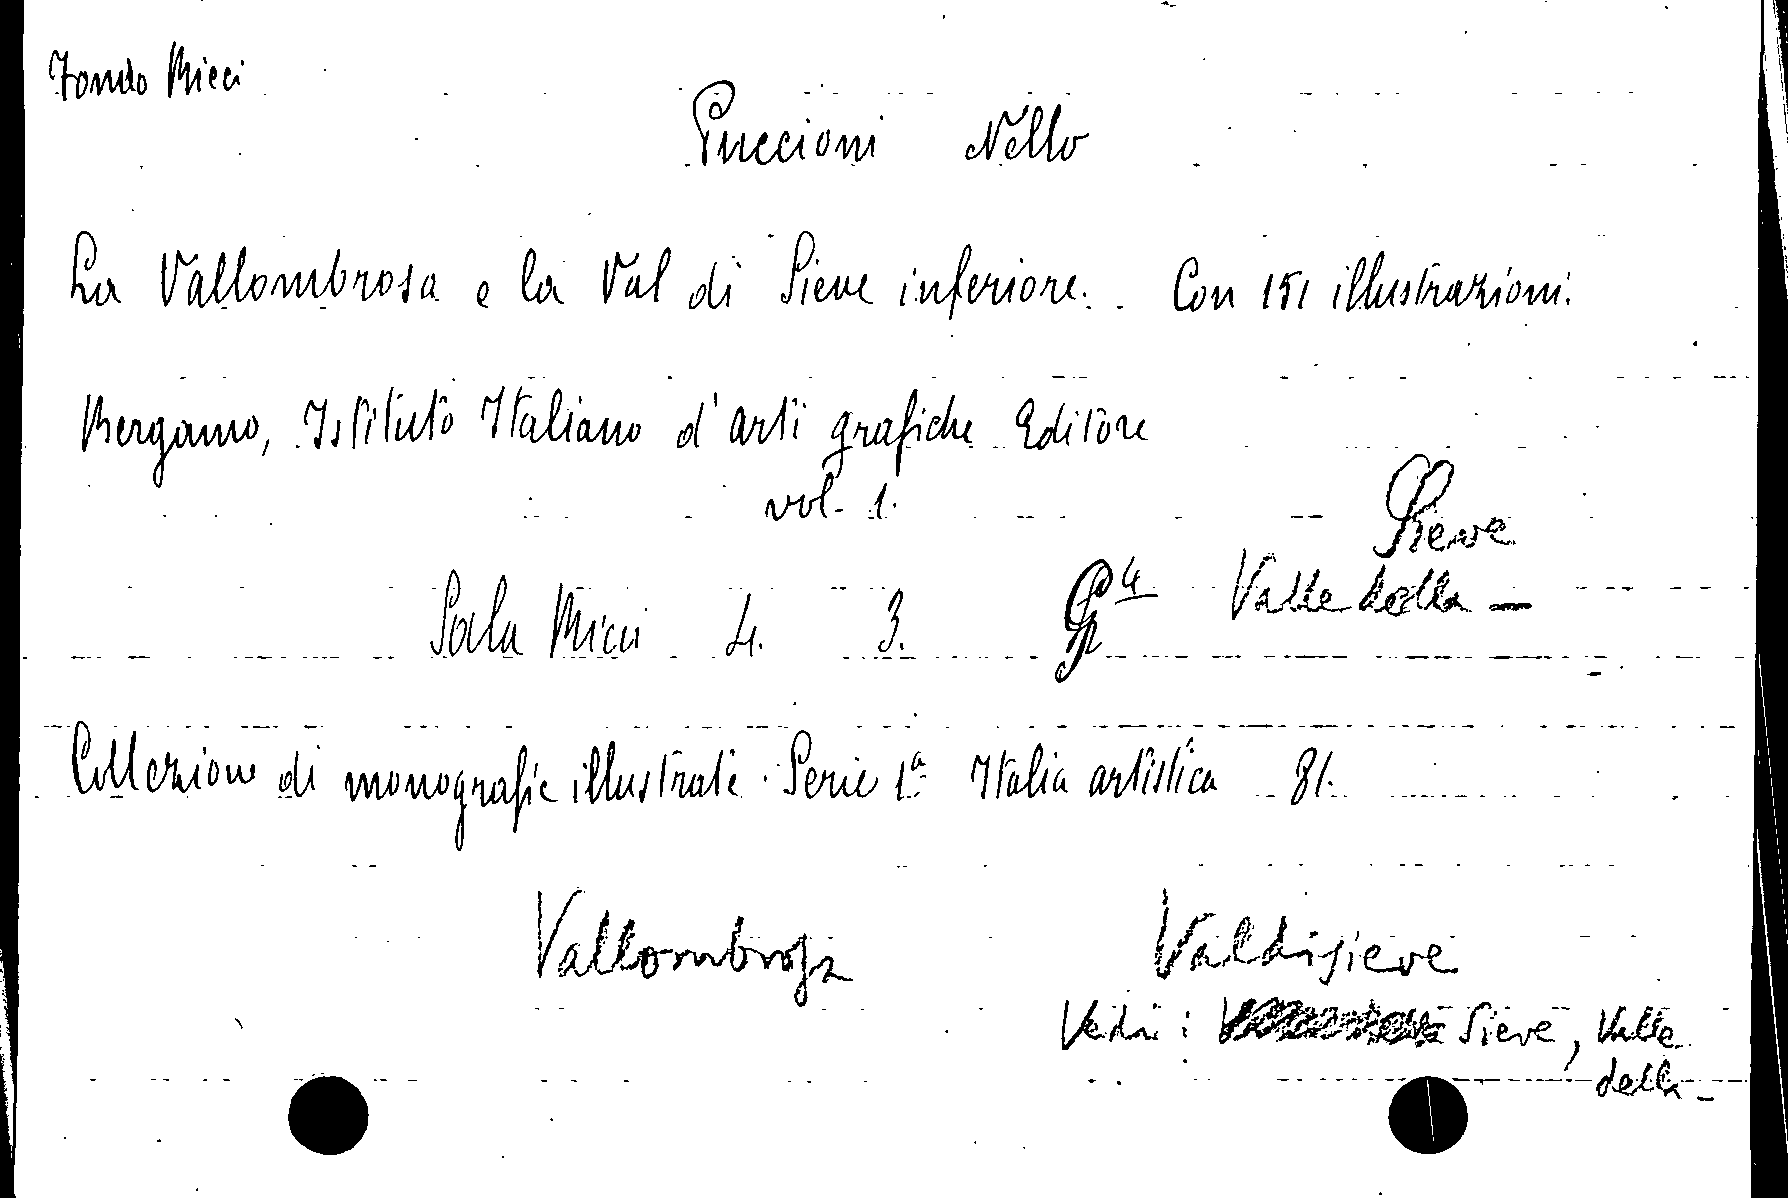 Fondo Ricci
Puccioni Nello
La Vallombrosa e la Val di Sieve inferiore. Con 151 illustrazioni.
Bergamo, Istituto Italiano d'arti grafiche Editore
vol. 1.
Sieve
Valle della —
Sala Ricci 4. 3.
Collezione di monografie illustrate. Serie 1ª Italia artistica 81.
Vallombrosa Valdisieve
Vedi: Sieve, Valle
della -